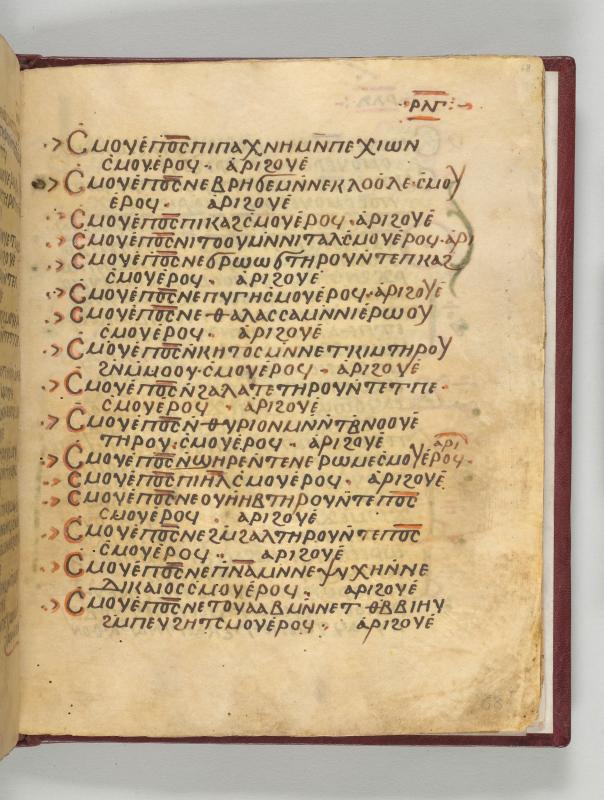 68
ⲣⲗⲅ
Ⲥⲙⲟⲩⲉ̇ⲡⲟ̅ⲥ̅ⲡⲓⲡⲁⲭⲛⲏⲙⲛ̇ⲡⲉⲭⲓⲱⲛ
ⲥ̇ⲙⲟⲩⲉⲣⲟϥ· ⲁ̇ⲣⲓϩⲟⲩⲉ̇
Ⲥⲙⲟⲩⲉ̇ⲡⲟ̅ⲥ̅ⲛⲉⲃⲣⲏϭⲉⲙⲛ̇ⲛⲉⲕⲗⲟⲟⲗⲉ·ⲥ̇ⲙⲟⲩ
ⲉ̇ⲣⲟϥ· ⲁ̇ⲣⲓϩⲟⲩⲉ̇
Ⲥⲙⲟⲩⲉ̇ⲡⲟ̅ⲥ̅ⲡⲓⲕⲁϩⲥ̇ⲙⲟⲩⲉ̇ⲣⲟϥ·ⲁ̇ⲣⲓϩⲟⲩⲉ̇
Ⲥⲙⲟⲩⲉ̇ⲡⲟ̅ⲥ̅ⲛⲓⲧⲟⲟⲩⲙⲛ̇ⲛⲓⲧⲁⲗⲥ̇ⲙⲟⲩⲉ̇ⲣⲟϥ·ⲁ̇ⲣⲓ
Ⲥⲙⲟⲩⲉ̇ⲡⲟ̅ⲥ̅ⲛⲉⲉⲣⲱⲱϭⲧⲏⲣⲟⲩⲛ̇ⲧⲉⲡⲕⲁϩ
ⲥ̇ⲙⲟⲩⲉⲣⲟϥ· ⲁ̇ⲣⲓϩⲟⲩⲉ̇
Ⲥⲙⲟⲩⲉ̇ⲡⲟ̅ⲥ̅ⲛⲉⲡⲩⲅⲏⲥ̇ⲙⲟⲩⲉ̇ⲣⲟϥ·ⲁ̇ⲣⲓϩⲟⲩⲉ̇
Ⲥⲙⲟⲩⲉ̇ⲡⲟ̅ⲥ̅ⲛⲉⲑⲁⲗⲁⲥⲥⲁⲙⲛ̇ⲛⲓⲉ̇ⲣⲱⲟⲩ
ⲥ̇ⲙⲟⲩⲉ̇ⲣⲟϥ· ⲁ̇ⲣⲓϩⲟⲩⲉ̇
Ⲥⲙⲟⲩⲉ̇ⲡⲟ̅ⲥ̅ⲛ̇ⲕⲏⲧⲟⲥⲙⲛ̇ⲛⲉⲧⲕⲓⲙⲧⲏⲣⲟⲩ
ϩⲛⲙ̇ⲙⲟⲟⲩ·ⲥ̇ⲙⲟⲩⲉⲣⲟϥ· ⲁ̇ⲣⲓϩⲟⲩⲉ̇
Ⲥⲙⲟⲩⲉ̇ⲡⲟ̅ⲥ̅ⲛ̇ϩⲁⲗⲁⲧⲉⲧⲏⲣⲟⲩⲛ̇ⲧⲉⲧⲡⲉ·
ⲥ̇ⲙⲟⲩⲉⲣⲟϥ · ⲁ̇ⲣⲓϩⲟⲩⲉ̇
Ⲥⲙⲟⲩⲉ̇ⲡⲟ̅ⲥ̅ⲛ̇ⲑⲩⲣⲓⲟⲛⲙⲛ̇ⲛ̇ⲧⲃ̇ⲛⲟⲟⲩⲉ̇
ⲧⲏⲣⲟⲩ·ⲥ̇ⲙⲟⲩⲉⲣⲟϥ· ⲁ̇ⲣⲓϩⲟⲩⲉ̇ ⲁⲣⲓ
Ⲥⲙⲟⲩⲉ̇ⲡⲟ̅ⲥ̅ⲛ̇ϣⲏⲣⲉⲛ̇ⲧⲉⲛⲉⲣⲱⲙⲉⲥ̇ⲙⲟⲩⲉ̇ⲣⲟϥ·
Ⲥⲙⲟⲩⲉ̇ⲡⲟ̅ⲥ̅ⲡⲓⲏ̅ⲗ̅ⲥ̇ⲙⲟⲩⲉⲣⲟϥ· ⲁ̇ⲣⲓϩⲟⲩⲉ̇
Ⲥⲙⲟⲩⲉ̇ⲡⲟ̅ⲥ̅ⲛⲉⲟⲩⲏ̇ⲏⲃⲧⲏⲣⲟⲩⲛ̇ⲧⲉⲡⲟ̅ⲥ̅
ⲥ̇ⲙⲟⲩⲉ̇ⲣⲟϥ · ⲁⲣⲓϩⲟⲩⲉ̇
Ⲥⲙⲟⲩⲉ̇ⲡⲟ̅ⲥ̅ⲛⲉϩⲙ̇ϩⲁⲗⲧⲏⲣⲟⲩⲛ̇ⲧⲉⲡⲟ̅ⲥ̅
ⲥ̇ⲙⲟⲩⲉ̇ⲣⲟϥ· ⲁ̇ⲣⲓϩⲟⲩⲉ̇
Ⲥⲙⲟⲩⲉ̇ⲡⲟ̅ⲥ̅ⲛⲉⲡⲛ̅ⲁ̅ⲙⲛ̇ⲛⲉⲯⲩⲭⲏⲛ̇ⲛⲉ
ⲇⲓⲕⲁⲓⲟⲥⲥ̇ⲙⲟⲩⲉⲣⲟϥ· ⲁ̇ⲣⲓϩⲟⲩⲉ̇
Ⲥⲙⲟⲩⲉ̇ⲡⲟ̅ⲥ̅ⲛⲉⲧⲟⲩⲁⲁⲃⲙⲛ̇ⲛⲉⲧⲑⲃ̇ⲃⲓⲏⲩ
ϩⲙⲡⲉⲩϩⲏⲧⲥ̇ⲙⲟⲩⲉ̇ⲣⲟϥ· ⲁ̇ⲣⲓϩⲟⲩⲉ̇
68